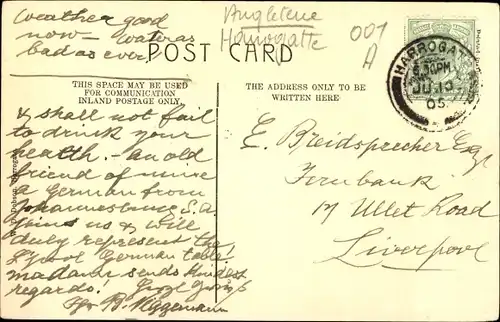 weather good
now — water as
bad as ever
Angleterre
Harrogatte
001
A
POST CARD
HARROGATE
8.30PM
JU 15
05
THIS SPACE MAY BE USED
FOR COMMUNICATION
INLAND POSTAGE ONLY.
THE ADDRESS ONLY TO BE
WRITTEN HERE
& shall not fail
to drink your
health. — an old
friend of mine
a German from
Johannesburg S.A.
joins us & will
duly represent the
L'pool German table.
madame sends kindest
regards!
B. Niggemann
E. Breidsprecher Esq.
Fernbank
17 Ullet Road
Liverpool